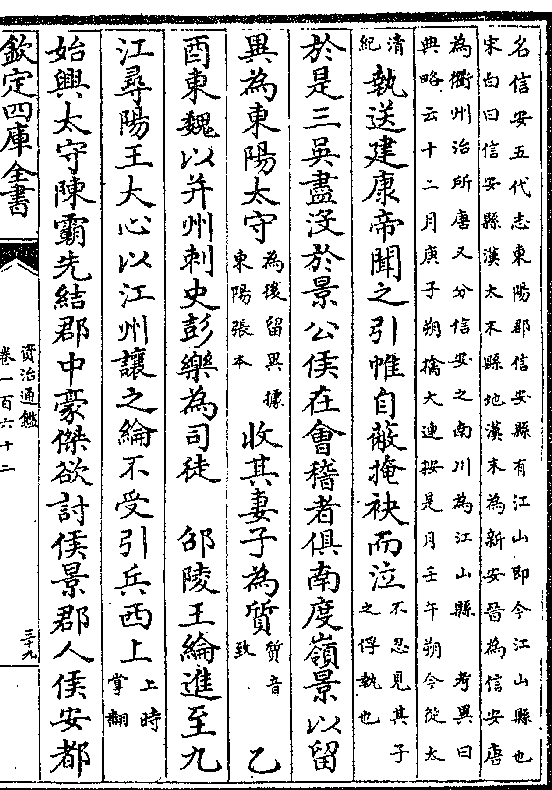 名信安五代志東陽郡信安縣有江山即今江山縣也
宋白曰信安縣漢太末縣地漢末為新安晉為信安唐
為衢州治所唐又分信安之南川為江山縣 考異曰
典略云十二月庚子朔擒大連按是月壬午朔今從太
清紀 執送建康帝聞之引帷自蔽掩袂而泣 不忍見其子之俘執也
於是三吳盡沒於景公侯在會稽者俱南度嶺景以留
異為東陽太守 為後留異據東陽張本 收其妻子為質 質音致 乙
酉東魏以并州刺史彭樂為司徒 邵陵王綸進至九
江尋陽王大心以江州讓之綸不受引兵西上 上時掌翻
始興太守陳霸先結郡中豪傑欲討侯景郡人侯安都
欽定四庫全書
資治通鑑
卷一百六十二
三十九